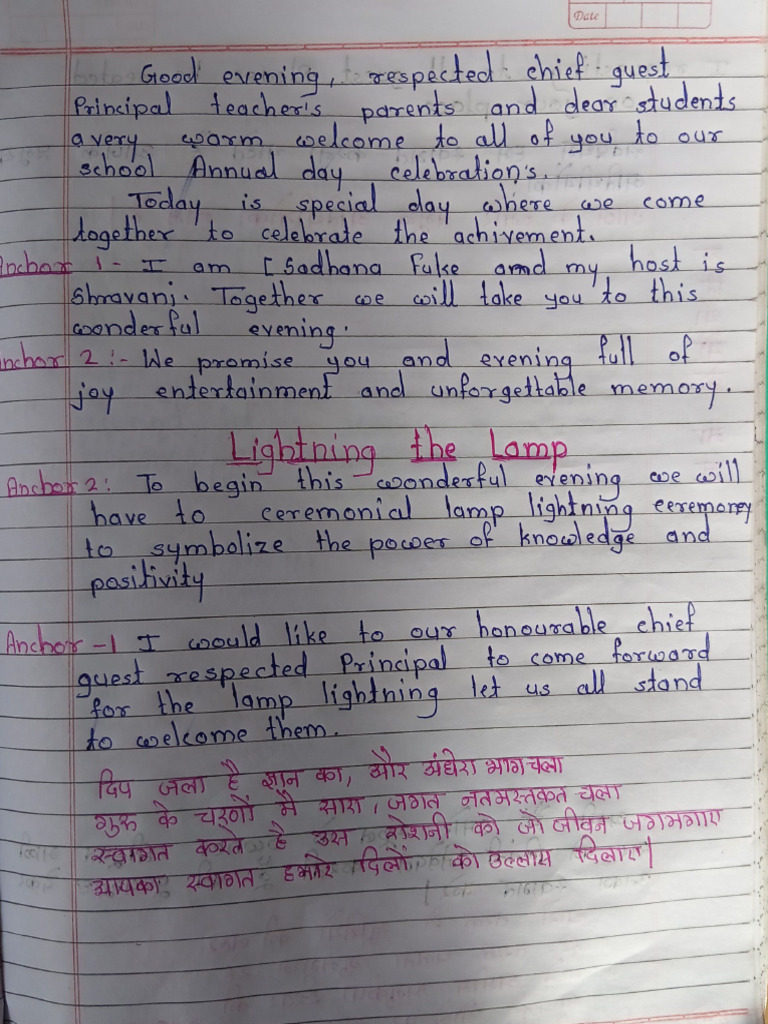 Date
Good evening, respected chief guest
Principal teacher's parents and dear students
a very warm welcome to all of you to our
school Annual day celebration's.
Today is special day where we come
together to celebrate the achivement.
Anchor 1- I am [ Sadhana Fuke and my host is
Shravani. Together we will take you to this
wonderful evening.
Anchor 2 :- We promise you and evening full of
joy entertainment and unforgettable memory.
Lightning the Lamp
Anchor 2: To begin this wonderful evening we will
have to ceremonial lamp lightning ceremoney
to symbolize the power of knowledge and
positivity
Anchor -1 I would like to our honourable chief
guest respected Principal to come forward
for the lamp lightning let us all stand
to welcome them.
दिप जला है ज्ञान का, और अंधेरा भाग चला
गुरू के चरणों मै सारा, जगत नतमस्तकत चला
स्वागत करते है उस रोशनी को जो जीवन जगमगाए
आपका स्वागत हमारे दिलों को उल्लास दिलाए।